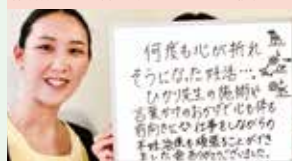 何度も心が折れ
そうになった妊活…。
ひかり先生の施術や
言葉かけのおかげで心も体も
前向きになり仕事をしながらの
不妊治療も頑張ることができ
ました。ありがとうございました。